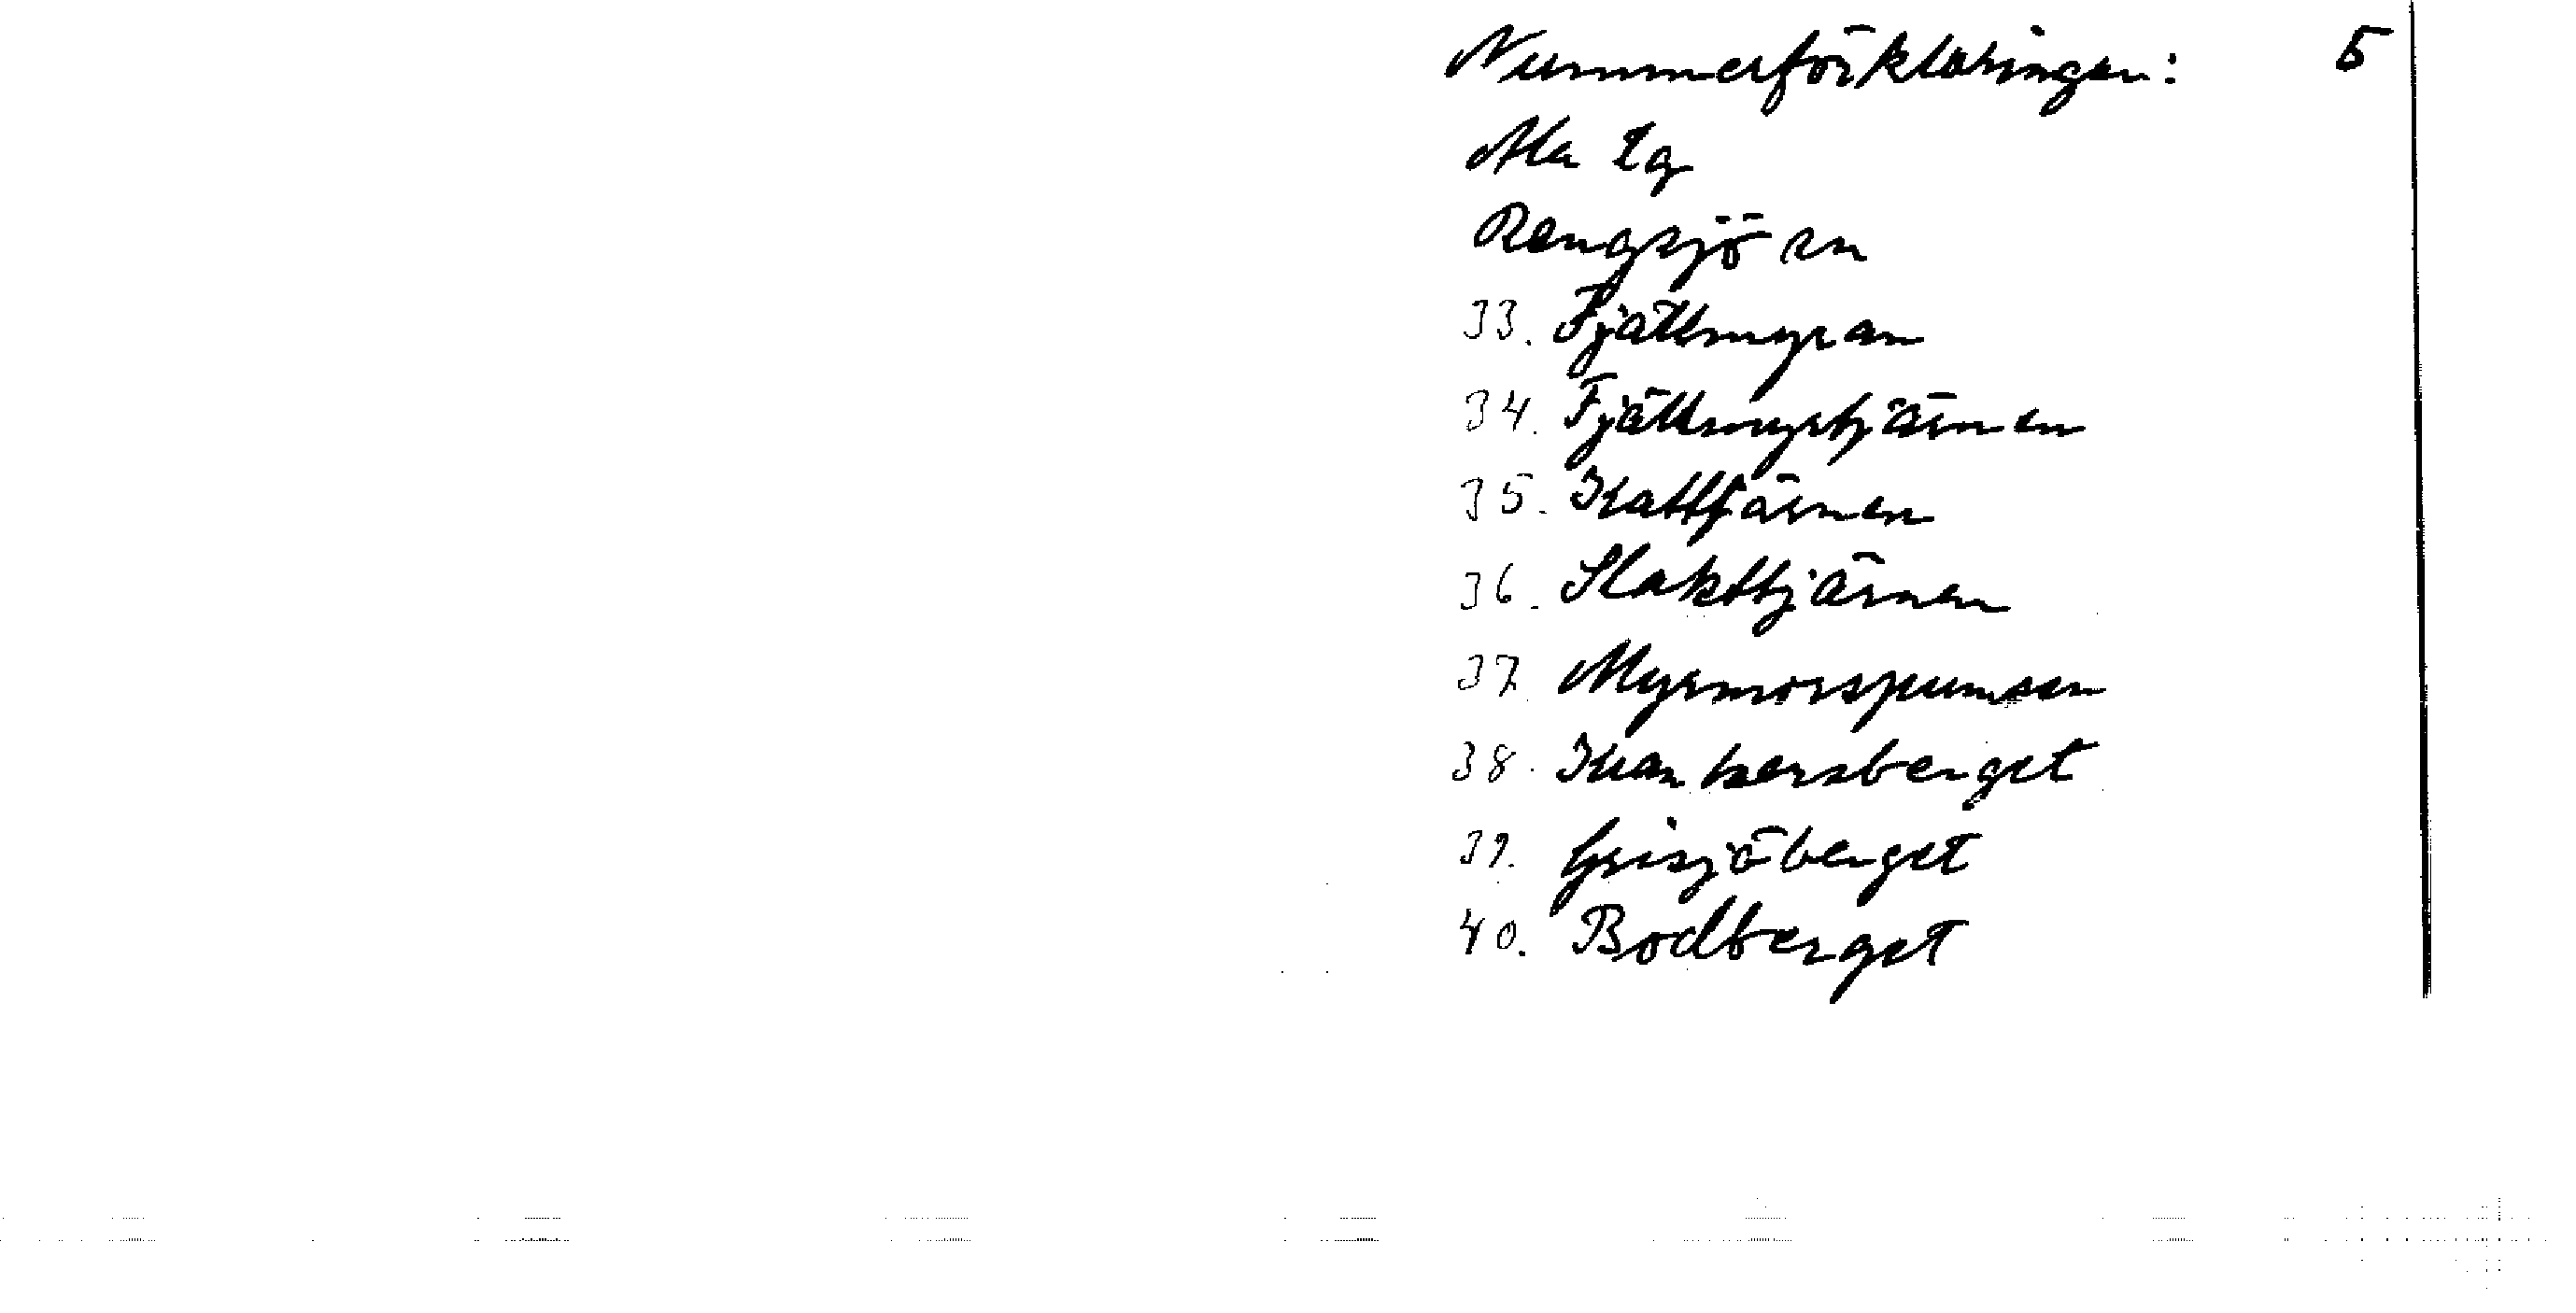 Nummerförklaringen: 5
Ala Lg
Rengsjö sn
33. Fjällmyran
34. Fjällmyrtjärnen
35. Kattjärnen
36. Slakttjärnen
37. Myrmorspumsen
38. Kvarkersberget
39. Grisjöberget
40. Bodberget